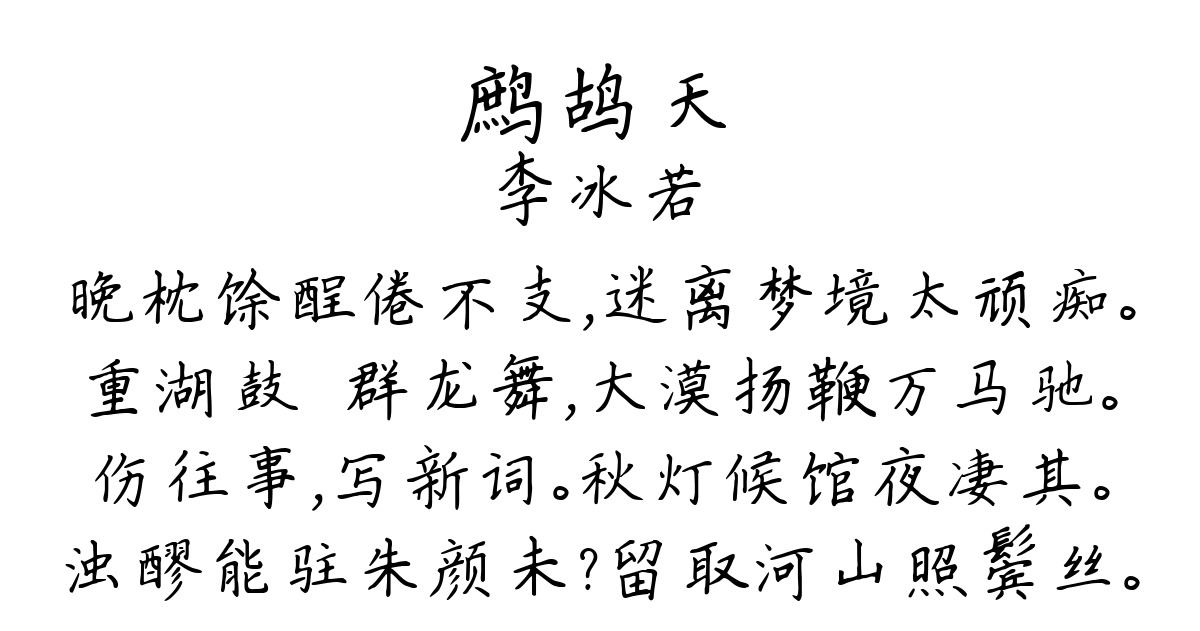 鹧鸪天
李冰若
晚枕馀酲倦不支,迷离梦境太顽痴。
重湖鼓 群龙舞,大漠扬鞭万马驰。
伤往事,写新词。秋灯候馆夜凄其。
浊醪能驻朱颜未?留取河山照鬓丝。